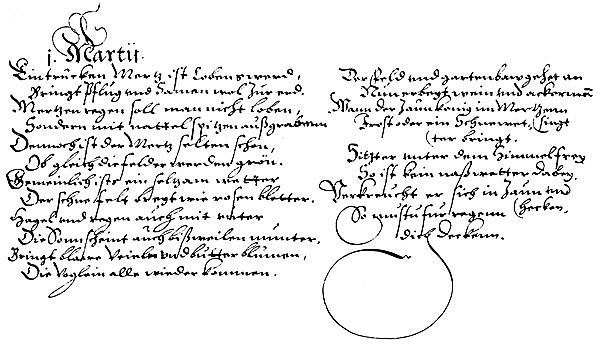 j. Martij.
Ein trucken Mertz ist Lobens werd,
Bringt Pflug und Samen wol zur erd.
Mertzen regen soll man nicht loben,
Sondern mit nattel spitzen außgraben
Dennoch ist der Mertz selten schön,
Ob gleich die felder werden grün.
Gemeinlich ists ein seltzam wetter
Der schne felt wie rosen bletter.
Hagel und regen auch mit unter
Die Sonn scheint auch bißweilen munter,
Bringt blawe Veieln und butter blumen,
Die Voglein alle wieder kommen.
Der feld und gartenbaw gehet an
Nun wein und ackerman
Wann der Zaunkönig im Mertzenn
Frost oder ein Schnewet, (singt
(ter bringt.
Sitzt er unter dem Himmel frey
So ist kein naß wetter dabey.
Verkreucht er sich in Zaun und
So mustu fur regenn (hecken.
dich deckenn.